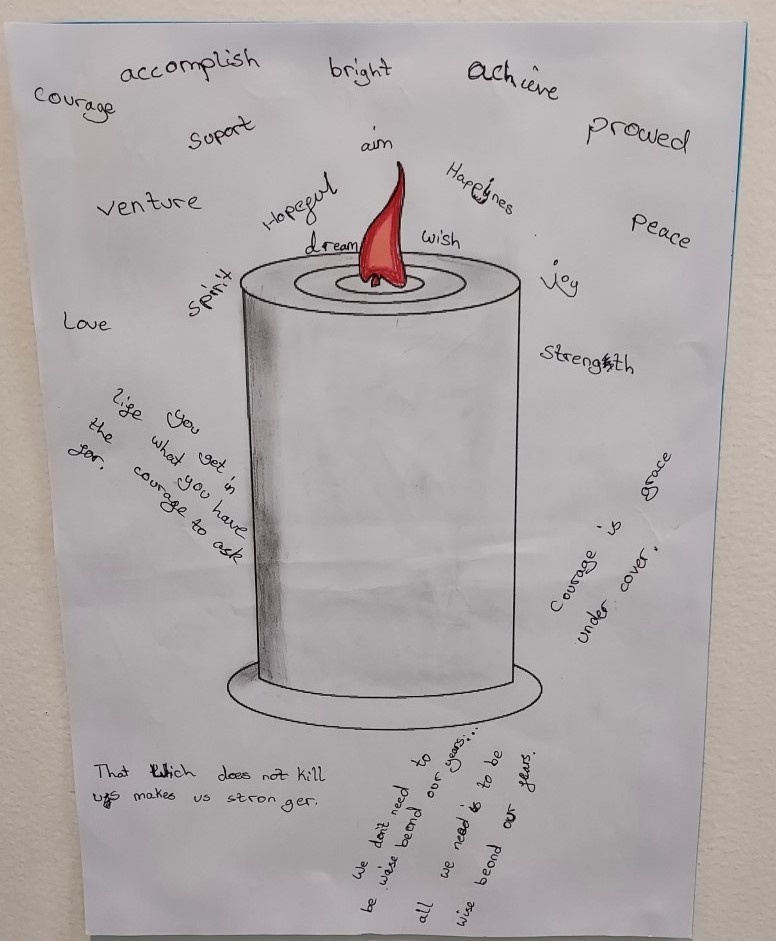 accomplish
bright
achieve
courage
suport
aim
prowed
venture
Hopegul
Hapeynes
Peace
dream
wish
spirit
joy
Love
strength
lige you get in
the what you have
gor. courage to ask
Courage is grace
under cover.
That which does not kill
us makes us stronger.
We don't need to
be wise beond our years...
all we need is to be
wise beond our gears.